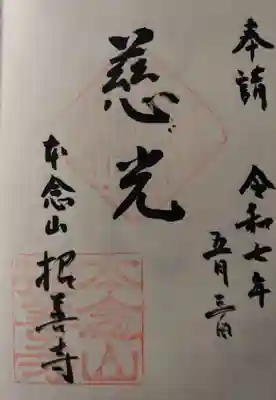 奉請
令和七年
五月三日
慈光
本念山
招善寺